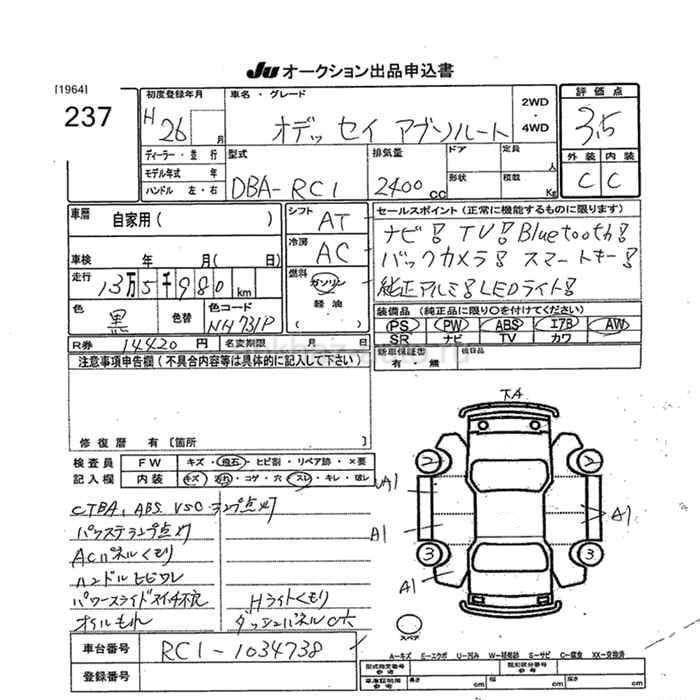 JU オークション出品申込書
[1964]
237
初度登録年月
H 26 月
車名・グレード
オデッセイ アブソルート
2WD
・
4WD
評価点
3.5
外装 内装
C C
ディーラー・並行
モデル年式 年
ハンドル 左・右
型式
DBA-RC1
排気量
2400cc
ドア
形状
定員
人
積載
Kg
車歴
自家用( )
車検 年 月( 日)
走行
13万5千980km
色
黒
色替
色コード
NH731P
R券 14420円 名変期限 月 日
シフト
AT
冷房
AC
燃料
ガソリン
・
軽油
( )
セールスポイント(正常に機能するものに限ります)
ナビ! TV! Bluetooth!
バックカメラ! スマートキー!
純正アルミ! LEDライト!
装備品(純正品に限り○を付けてください)
PS PW ABS エアB AW
SR ナビ TV カワ
新車保証書
有・無
後日品
注意事項申告欄(不具合内容等は具体的に記入して下さい)
修復歴 有〔箇所 〕
検査員 FW キズ・飛石・ヒビ割・リペア跡・×要
記入欄 内装 キズ・汚れ・コゲ・穴・スレ・キレ・破レ
CTBA, ABS VSC ランプ点灯
パワステランプ点灯
ACパネルくもり
ハンドルヒビワレ
パワースライドスイッチ不良
オイルもれ
Hライトくもり
ダッシュパネル穴
下A
2 2
A1
A1
A1
3 3
A1
スペア
車台番号 RC1-1034738
登録番号
A-キズ E-エクボ U-凹み W-補修跡 S-サビ C-腐食 XX-交換済
型式指定番号
参考
類別区分番号
参考
車庫証明用
参考
長さ cm 幅 cm 高さ cm